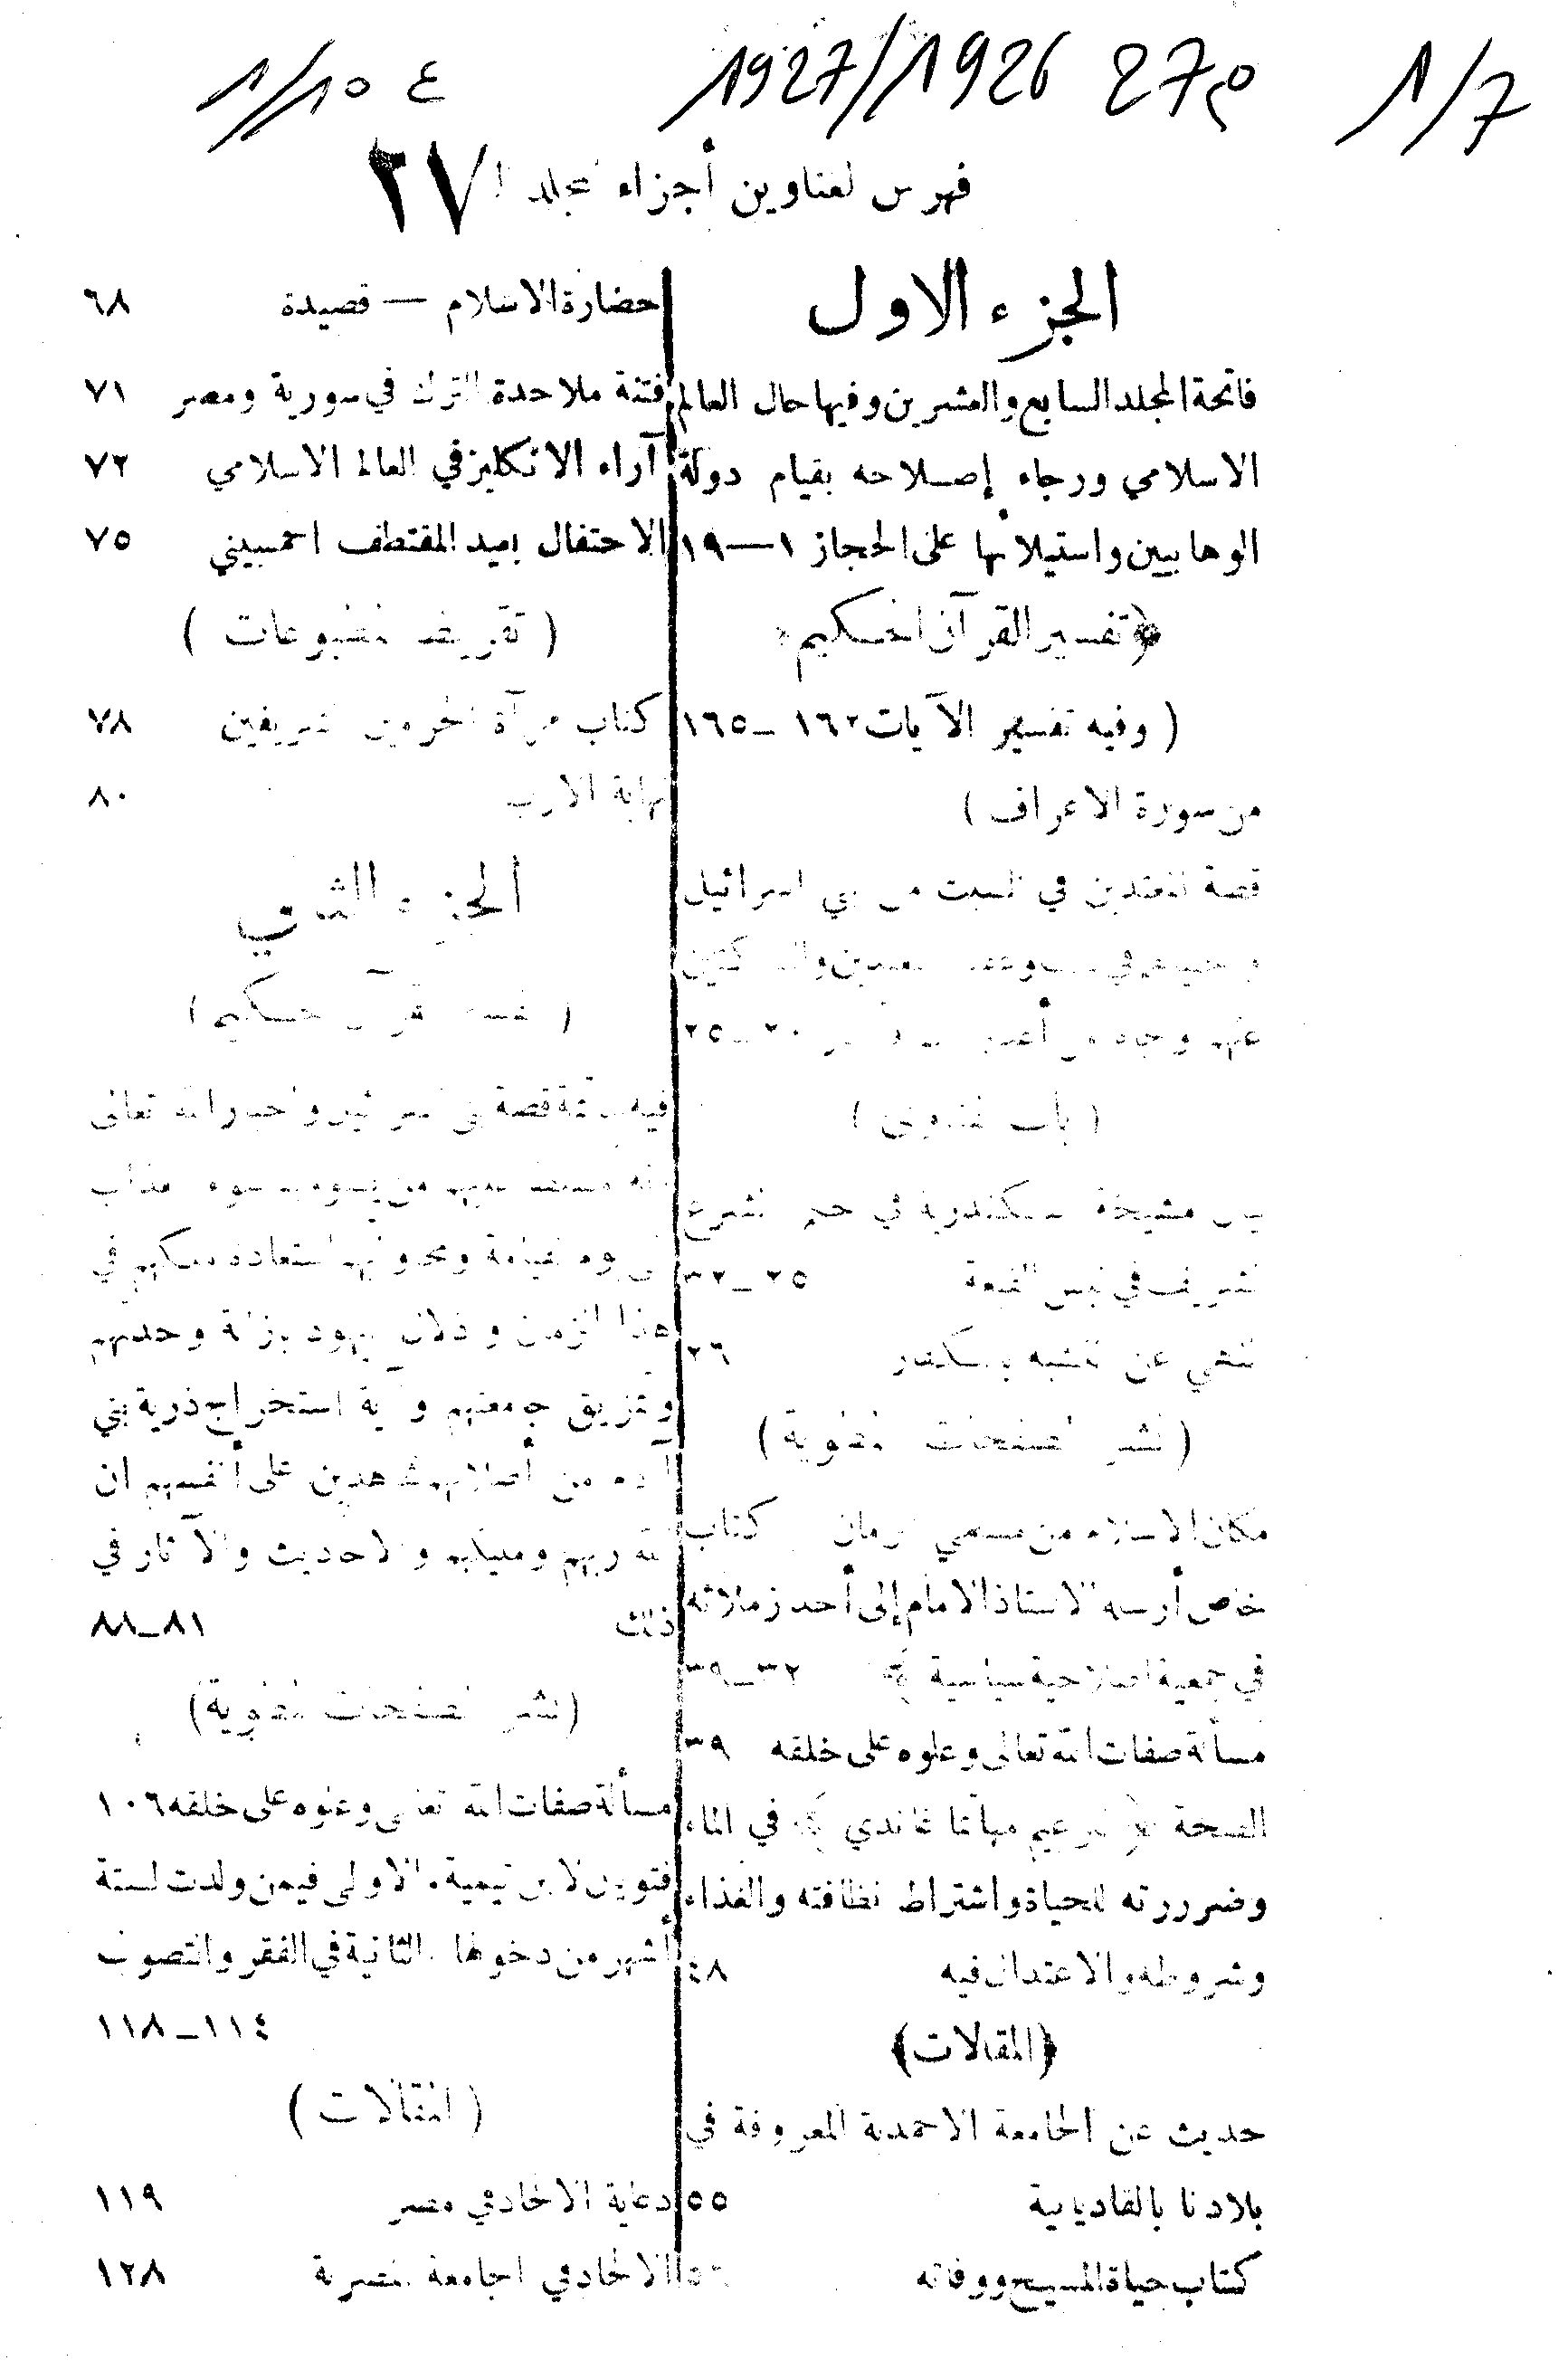 1/7 م27 1926/1927 ع 1/10
فهرس لعناوين أجزاء مجلد ٢٧
الجزء الاول
فاتحة المجلد السابع والعشرين وفيها حال العالم
الاسلامي ورجاء إصلاحه بقيام دولة
الوهابيين واستيلائها على الحجاز ١—١٩
﴿تفسير القرآن الحكيم﴾
( وفيه تفسير الآيات ١٦٢ – ١٦٥
من سورة الاعراف )
قصة المعتدين في السبت من بني اسرائيل
٢٠–٢٥
( باب الفتاوى )
مشيخة الاسكندرية في حكم الشرع
الشريف في لبس القبعة ٢٥–٣٢
النهي عن التشبه بالكفار ٢٦
(نشر الصفحات المطوية)
مكان الاسلام من مسلمي الزمان كتاب
خاص أرسله الاستاذ الامام إلى أحد زملائه
في جمعية اصلاحية سياسية ٣٢–٣٩
مسألة صفات الله تعالى وعلوه على خلقه ٣٩
الصحة لزعيم مهاتما غاندي في الماء
وضرورته للحياة واشتراط نظافته والغذاء
وشروطه والاعتدال فيه ٤٨
﴿المقالات﴾
حديث عن الجامعة الاحمدية المعروفة في
بلادنا بالقاديانية ٥٥
كتاب حياة المسيح ووفاته
حضارة الاسلام — قصيدة ٦٨
فتنة ملاحدة الترك في سورية ومصر ٧١
آراء الانكليز في العالم الاسلامي ٧٢
الاحتفال بعيد المقتطف الخمسيني ٧٥
( تقريظ المطبوعات )
كتاب مرآة الحرمين الشريفين ٧٨
نهاية الارب ٨٠
الجزء الثاني
( تفسير القرآن الحكيم )
فيه تتمة قصة بني اسرائيل واخبار الله تعالى
من يسومهم سوء العذاب
الى يوم القيامة ومحاولتهم استعادة ملكهم في
هذا الزمن
وتمزيق جامعتهم وآية استخراج ذرية بني
آدم من أصلابهم شاهدين على أنفسهم ان
الله ربهم ومليكهم والاحاديث والآثار في
ذلك ٨١–٨٨
(نشر الصفحات المطوية)
مسألة صفات الله تعالى وعلوه على خلقه ١٠٦
فتويان لابن تيمية. الاولى فيمن ولدت لستة
أشهر من دخولها. الثانية في الفقر والتصوف
١١٤–١١٨
( المقالات )
دعاية الالحاد في مصر ١١٩
الالحاد في الجامعة المصرية ١٢٨